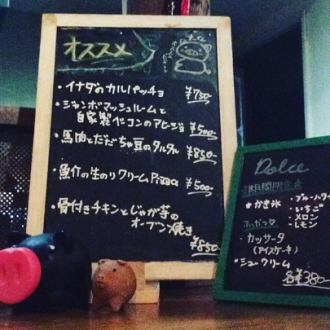 オススメ
・イナダのカルパッチョ
¥750
・ジャンボマッシュルームと
自家製ベーコンのアヒージョ
¥500
・馬肉とだだちゃ豆のタルタル
¥850
・魚介の生のりクリームPizza
¥500
・骨付きチキンとじゃが芋の
オーブン焼き
¥850
Dolce
期間限定
・かき氷
・ブルーハワイ
・いちご
・メロン
・レモン
・カッサータ
(アイスケーキ)
・シュークリーム
各¥380